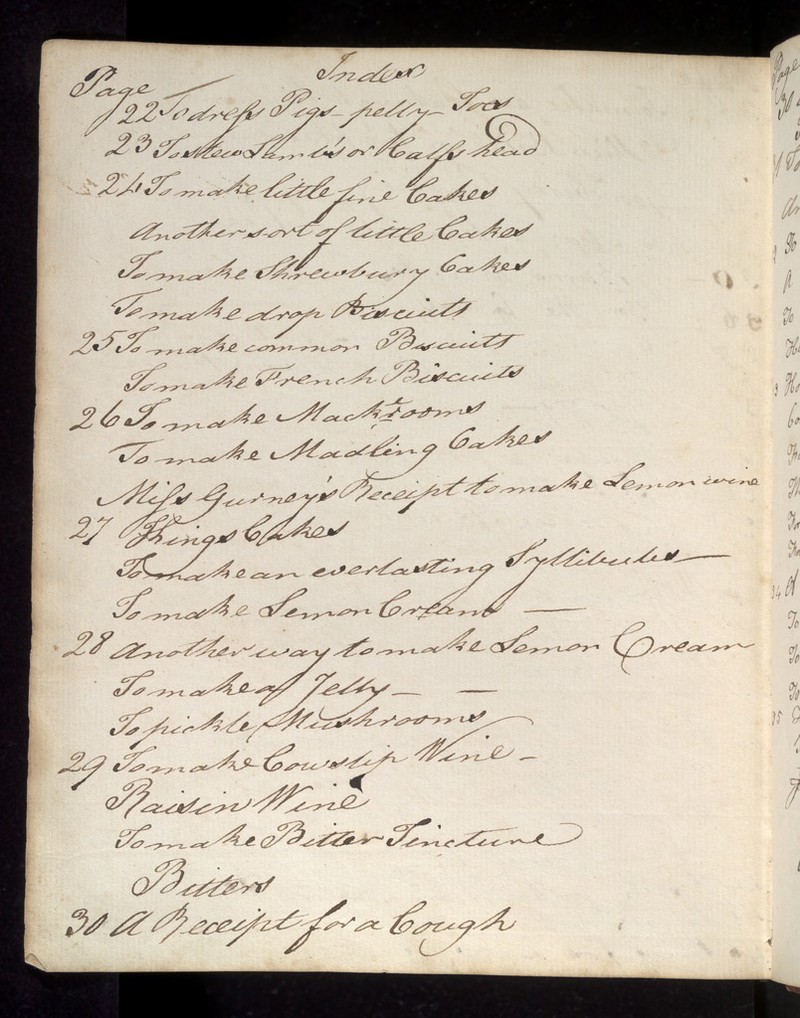 Index
Page
22 To dress Pigs-pelly-Toes
23 To stew Lamb's or Calfs head
24 To make little fine Cakes
Another sort of little Cakes
To make Shrewbury Cakes
To make drop Biscuitt
25 To make common Biscuitt
To make French Biscuits
26 To make Mackrooms
To make Madling Cakes
Miss Gurney's Receipt to make Lemon wine
27 Kings Cakes
To make an everlasting Syllibubs —
To make Lemon Cream —
28 Another way to make Lemon Cream
To make a Jelly — —
To pickle Mushrooms
29 To make Cowslip Wine -
Raisin Wine
To make Bitter Tincture
Bitters
30 A Receipt for a Cough
Page
30
To
An
To
A
To
To
To
To
35